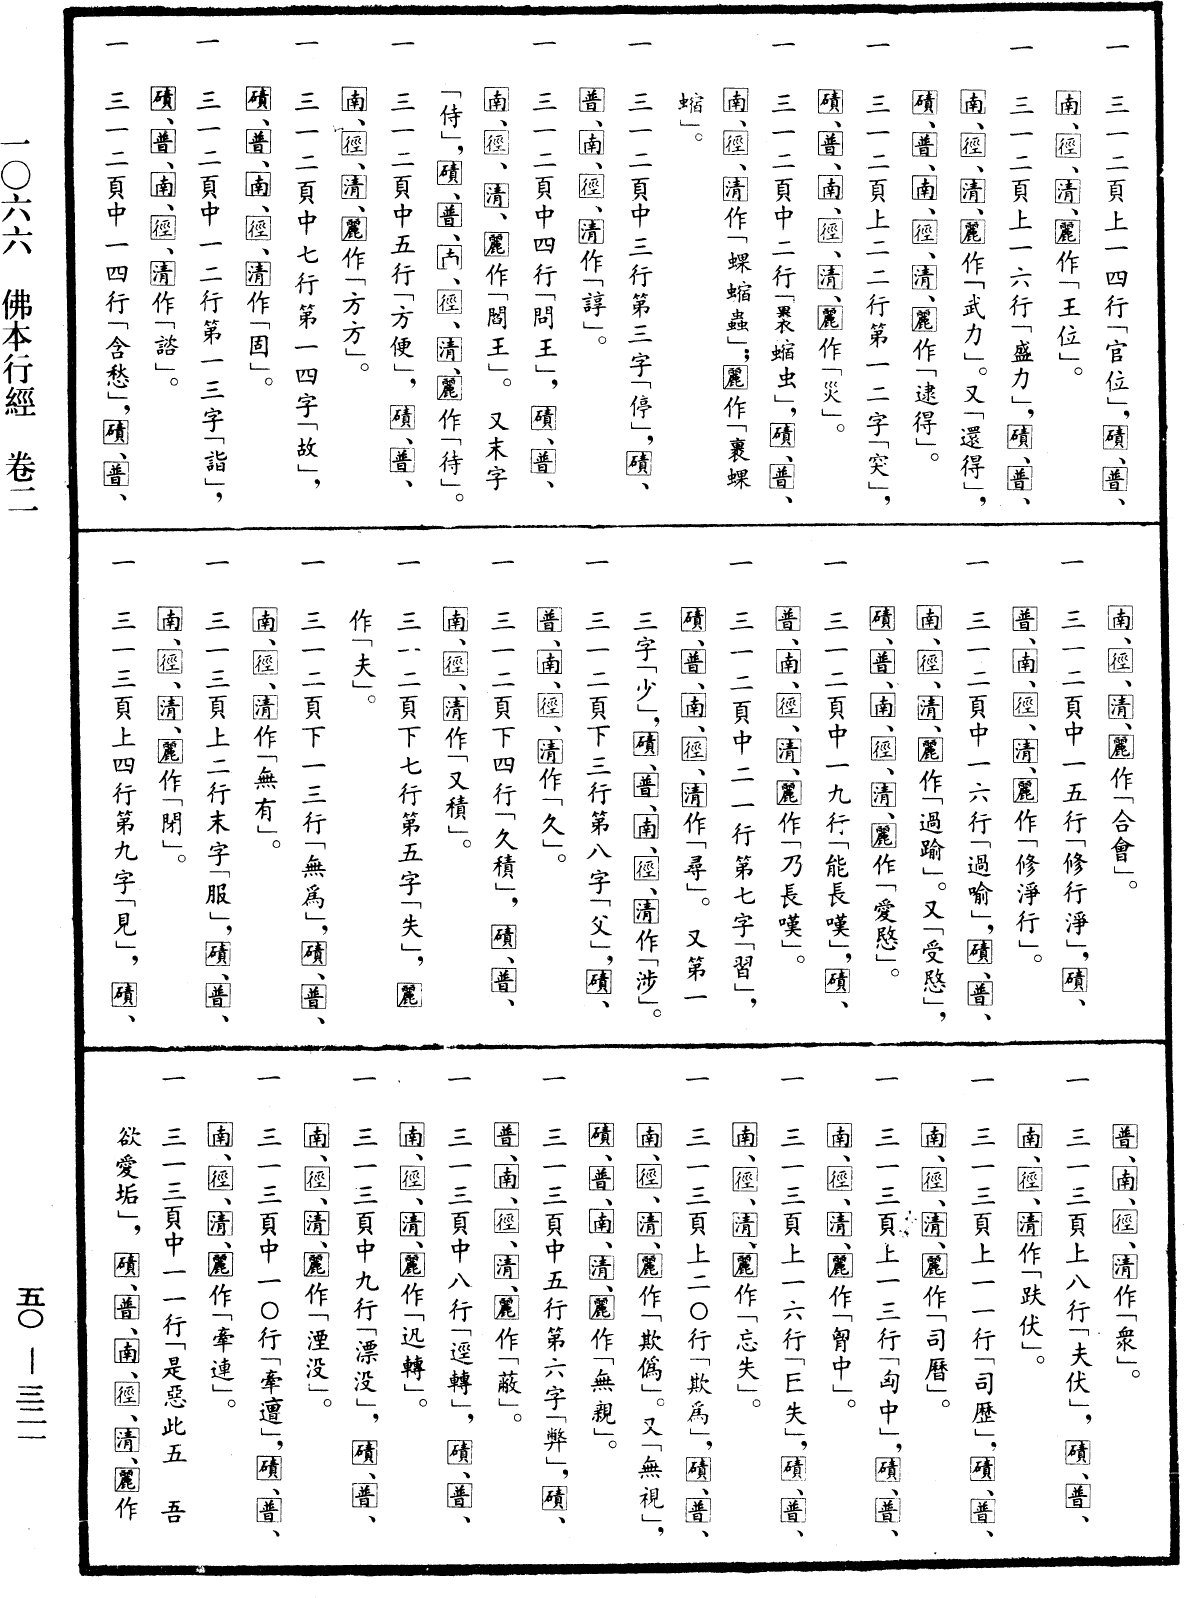 一　三一二頁上一四行「官位」，磧、普、
南、徑、清、麗作「王位」。
一　三一二頁上一六行「盛力」，磧、普、
南、徑、清、麗作「武力」。又「還得」，
磧、普、南、徑、清、麗作「逮得」。
一　三一二頁上二二行第一二字「突」，
磧、普、南、徑、清、麗作「災」。
一　三一二頁中二行「㬥縮虫」，磧、普、
南、徑、清作「螺縮蟲」；麗作「裹螺
縮」。
一　三一二頁中三行第三字「停」，磧、
普、南、徑、清作「諄」。
一　三一二頁中四行「問王」，磧、普、
南、徑、清、麗作「閻王」。又末字
「侍」，磧、普、南、徑、清、麗作「待」。
一　三一二頁中五行「方便」，磧、普、
南、徑、清、麗作「方方」。
一　三一二頁中七行第一四字「故」，
磧、普、南、徑、清作「固」。
一　三一二頁中一二行第一三字「詣」，
磧、普、南、徑、清作「諮」。
一　三一二頁中一四行「含愁」，磧、普、
南、徑、清、麗作「合會」。
一　三一二頁中一五行「修行淨」，磧、
普、南、徑、清、麗作「修淨行」。
一　三一二頁中一六行「過喻」，磧、普、
南、徑、清、麗作「過踰」。又「受愍」，
磧、普、南、徑、清、麗作「愛愍」。
一　三一二頁中一九行「能長嘆」，磧、
普、南、徑、清、麗作「乃長嘆」。
一　三一二頁中二一行第七字「習」，
磧、普、南、徑、清作「尋」。又第一
三字「少」，磧、普、南、徑、清作「涉」。
一　三一二頁下三行第八字「父」，磧、
普、南、徑、清作「久」。
一　三一二頁下四行「久積」，磧、普、
南、徑、清作「又積」。
一　三一二頁下七行第五字「失」，麗
作「夫」。
一　三一二頁下一三行「無爲」，磧、普、
南、徑、清作「無有」。
一　三一三頁上二行末字「服」，磧、普、
南、徑、清、麗作「閉」。
一　三一三頁上四行第九字「見」，磧、
普、南、徑、清作「衆」。
一　三一三頁上八行「夫伏」，磧、普、
南、徑、清作「趺伏」。
一　三一三頁上一一行「司歷」，磧、普、
南、徑、清、麗作「司曆」。
一　三一三頁上一三行「匈中」，磧、普、
南、徑、清、麗作「胷中」。
一　三一三頁上一六行「巨失」，磧、普、
南、徑、清、麗作「忘失」。
一　三一三頁上二〇行「欺爲」，磧、普、
南、徑、清、麗作「欺僞」。又「無視」，
磧、普、南、清、麗作「無親」。
一　三一三頁中五行第六字「弊」，磧、
普、南、徑、清、麗作「蔽」。
一　三一三頁中八行「逕轉」，磧、普、
南、徑、清、麗作「迅轉」。
一　三一三頁中九行「漂没」，磧、普、
南、徑、清、麗作「湮没」。
一　三一三頁中一〇行「牽邅」，磧、普、
南、徑、清、麗作「牽連」。
一　三一三頁中一一行「是惡此五　吾
欲愛垢」，磧、普、南、徑、清、麗作
一〇六六　佛本行經　卷二
五〇—三二一